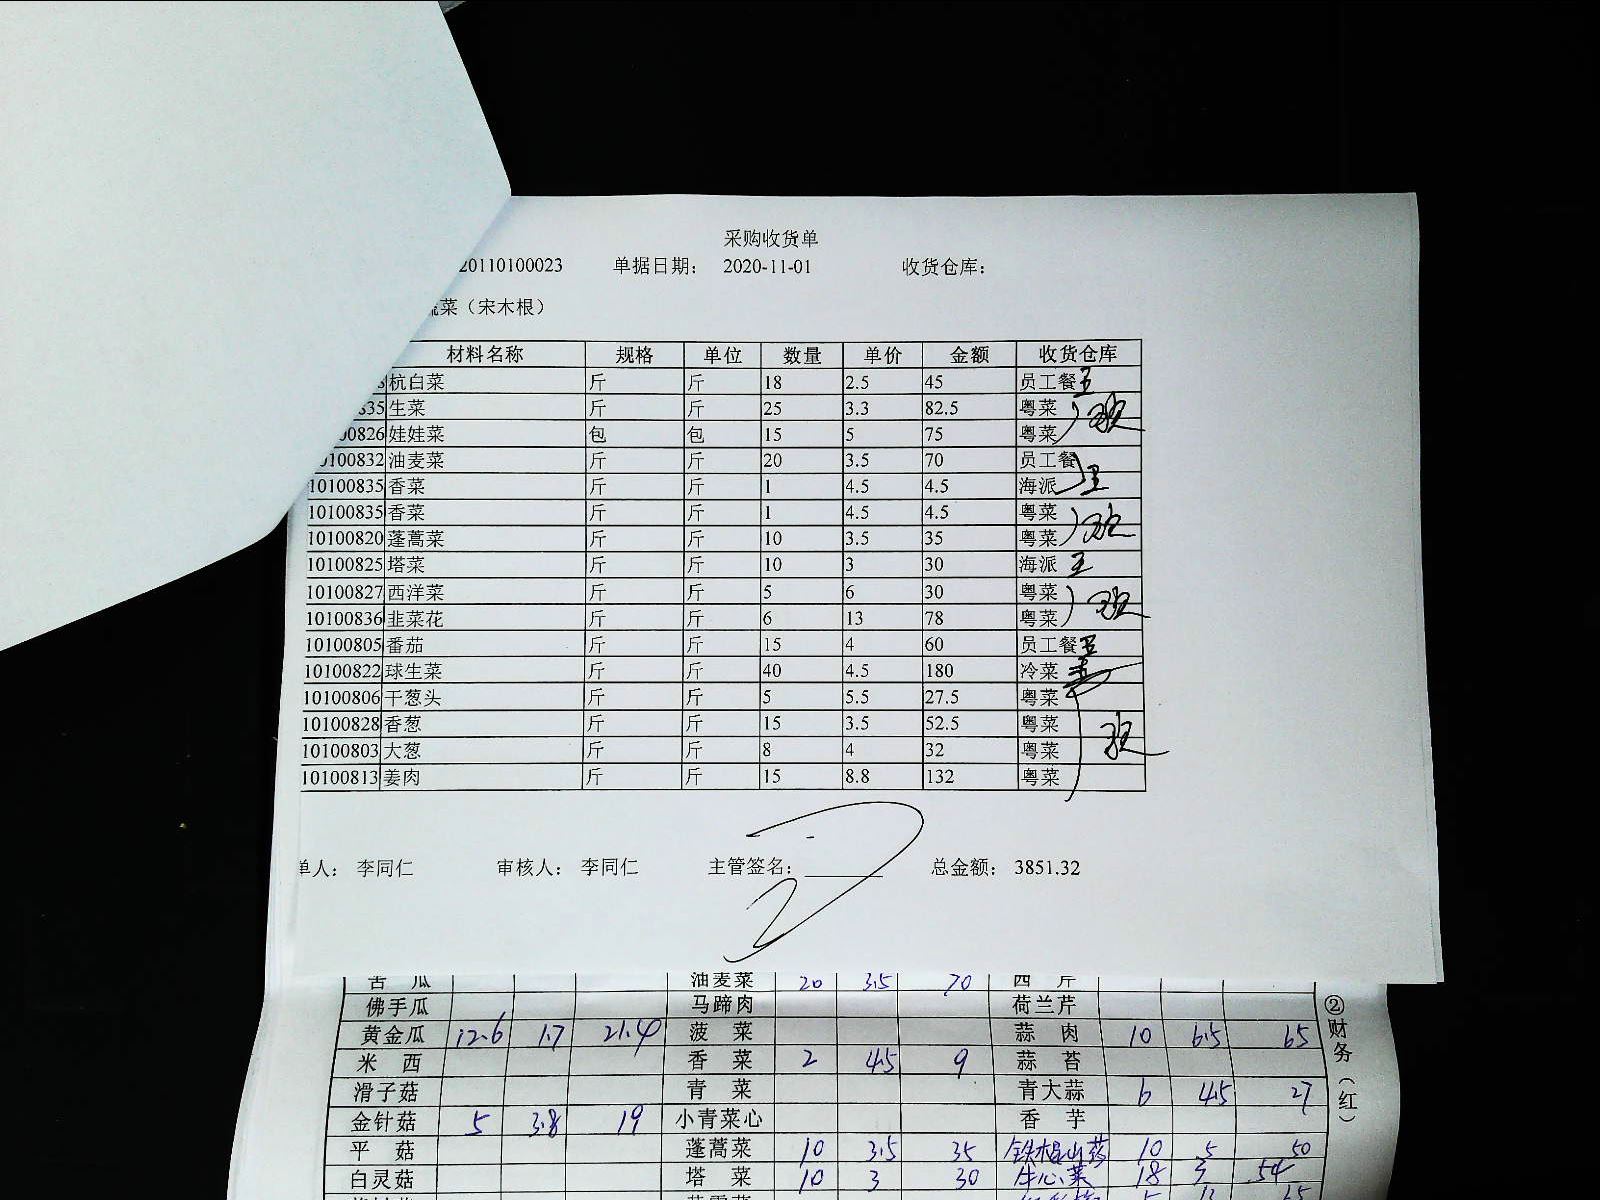 采购收货单
20110100023 单据日期： 2020-11-01 收货仓库：
菜（宋木根）
材料名称 规格 单位 数量 单价 金额 收货仓库
杭白菜 斤 斤 18 2.5 45 员工餐
835 生菜 斤 斤 25 3.3 82.5 粤菜
00826 娃娃菜 包 包 15 5 75 粤菜
0100832 油麦菜 斤 斤 20 3.5 70 员工餐
10100835 香菜 斤 斤 1 4.5 4.5 海派
10100835 香菜 斤 斤 1 4.5 4.5 粤菜
10100820 蓬蒿菜 斤 斤 10 3.5 35 粤菜
10100825 塔菜 斤 斤 10 3 30 海派
10100827 西洋菜 斤 斤 5 6 30 粤菜
10100836 韭菜花 斤 斤 6 13 78 粤菜
10100805 番茄 斤 斤 15 4 60 员工餐
10100822 球生菜 斤 斤 40 4.5 180 冷菜
10100806 干葱头 斤 斤 5 5.5 27.5 粤菜
10100828 香葱 斤 斤 15 3.5 52.5 粤菜
10100803 大葱 斤 斤 8 4 32 粤菜
10100813 姜肉 斤 斤 15 8.8 132 粤菜
单人： 李同仁 审核人： 李同仁 主管签名： 总金额： 3851.32
苦瓜 油麦菜 20 3.5 70 西芹
佛手瓜 马蹄肉 荷兰芹
黄金瓜 12.6 1.7 21.4 菠菜 蒜肉 10 6.5 65
米西 香菜 2 4.5 9 蒜苔
滑子菇 青菜 青大蒜 6 4.5 27
金针菇 5 3.8 19 小青菜心 香芋
平菇 蓬蒿菜 10 3.5 35 铁棍山药 10 5 50
白灵菇 塔菜 10 3 30 牛心菜 18 3 54
②财务（红）